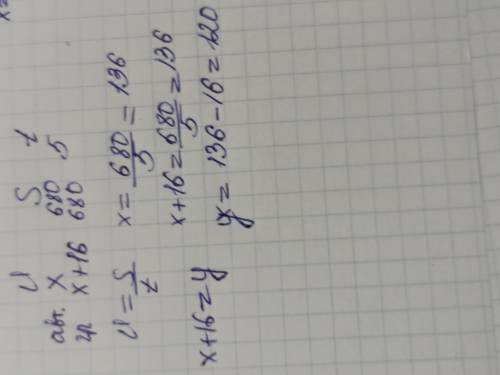 v S t
авт. x 680 5
гр x+16 680
v = S/t x = 680/5 = 136
x+16 = 680/5 = 136
x+16=y y = 136-16=120